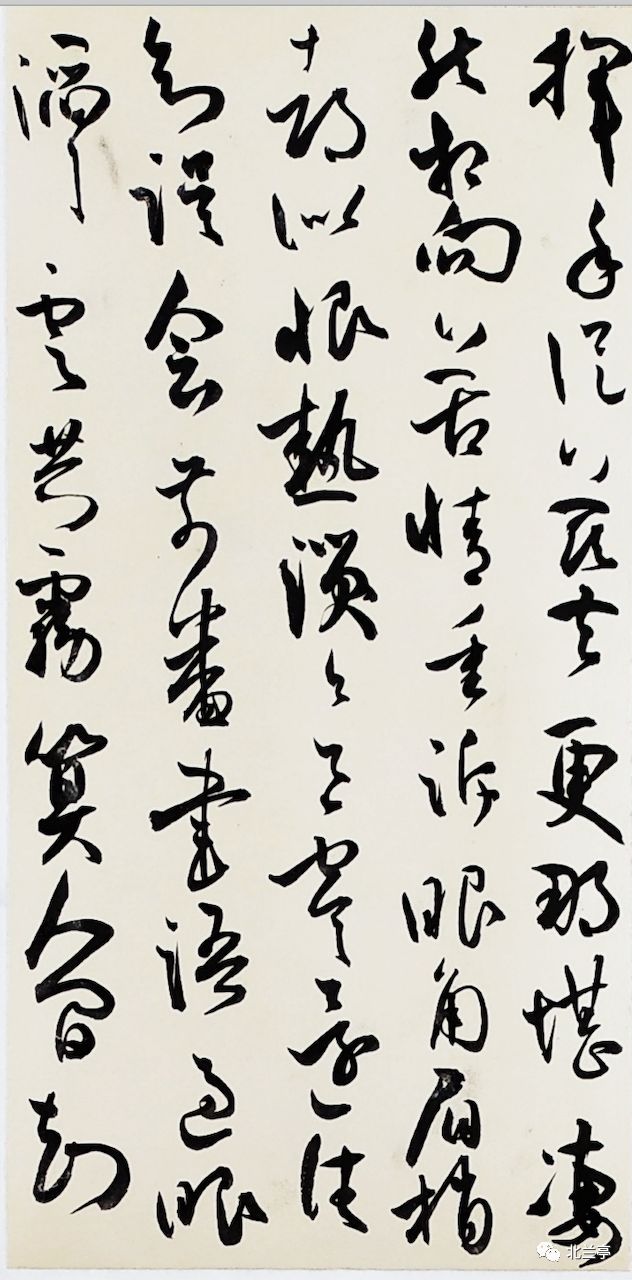 揮手從茲去更那堪凄
然相向苦情重訴眼角眉梢
都似恨熱淚欲零還住
知誤會前番書語過眼
滔滔雲共霧算人間知
北兰亭